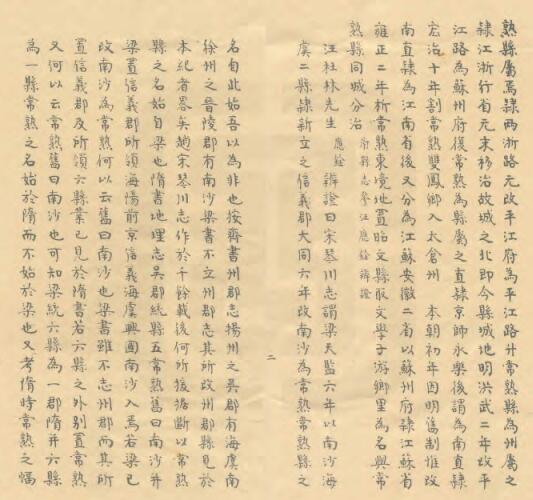 熟縣屬焉隸兩浙路元改平江府為平江路升常熟縣為州屬之
隸江浙行省元末移治故城之北即今縣城地明洪武二年改平
江路為蘇州府後常熟為縣屬之直隸京師永樂後謂為南直隸
宏治十年割常熟雙鳳鄉入太倉州　本朝初年因明舊制惟改
南直隸為江南省後又分為江蘇安徽二省以蘇州府隸江蘇省
雍正二年析常熟東境地置昭文縣取文學子游鄉里為名與常
熟縣同城分治
汪杜林先生應銓辨證曰宋琴川志謂梁天監六年以南沙海
虞二縣隸新立之信義郡大同六年改南沙為常熟縣常熟縣之
二
名自此始吾以為非也按齊書州郡志揚州之吳郡有海虞南
徐州之晉陵郡有南沙梁書不立州郡志其所改州郡縣見於
本紀者畧矣趙宋琴川志作於千餘載後何所援據斷以常熟
縣之名始自梁也隋書地理志吳郡統縣五常熟舊曰南沙并
梁置信義郡所領海陽前京信義海虞興國南沙入焉若梁已
改南沙為常熟何以云舊曰南沙也梁書雖不志州郡而其所
置信義郡及所領六縣業已見於隋書若六縣之外別置常熟
又何以云常熟舊曰南沙也可知梁統六縣為一郡隋并六縣
為一縣常熟之名始於隋而不始於梁也又考隋時常熟之幅